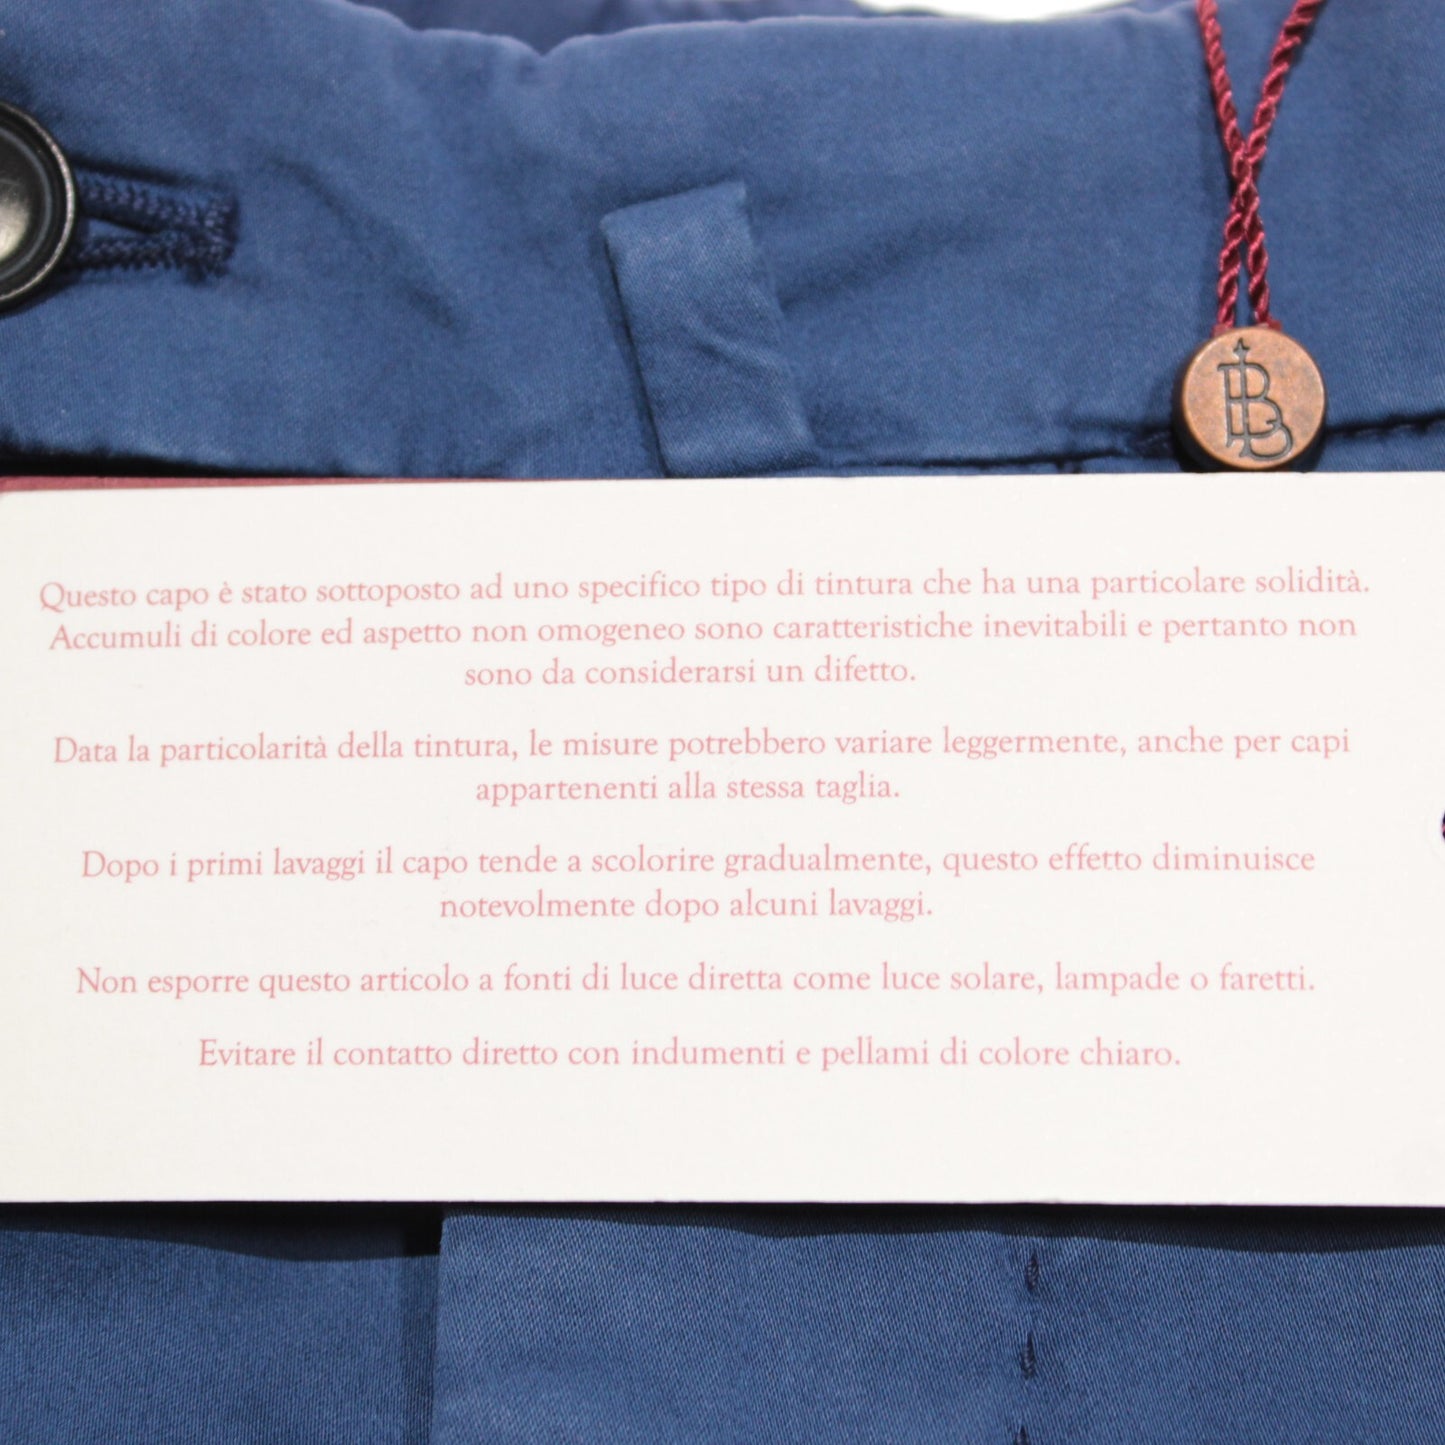 LB
Questo capo è stato sottoposto ad uno specifico tipo di tintura che ha una particolare solidità.
Accumuli di colore ed aspetto non omogeneo sono caratteristiche inevitabili e pertanto non
sono da considerarsi un difetto.
Data la particolarità della tintura, le misure potrebbero variare leggermente, anche per capi
appartenenti alla stessa taglia.
Dopo i primi lavaggi il capo tende a scolorire gradualmente, questo effetto diminuisce
notevolmente dopo alcuni lavaggi.
Non esporre questo articolo a fonti di luce diretta come luce solare, lampade o faretti.
Evitare il contatto diretto con indumenti e pellami di colore chiaro.